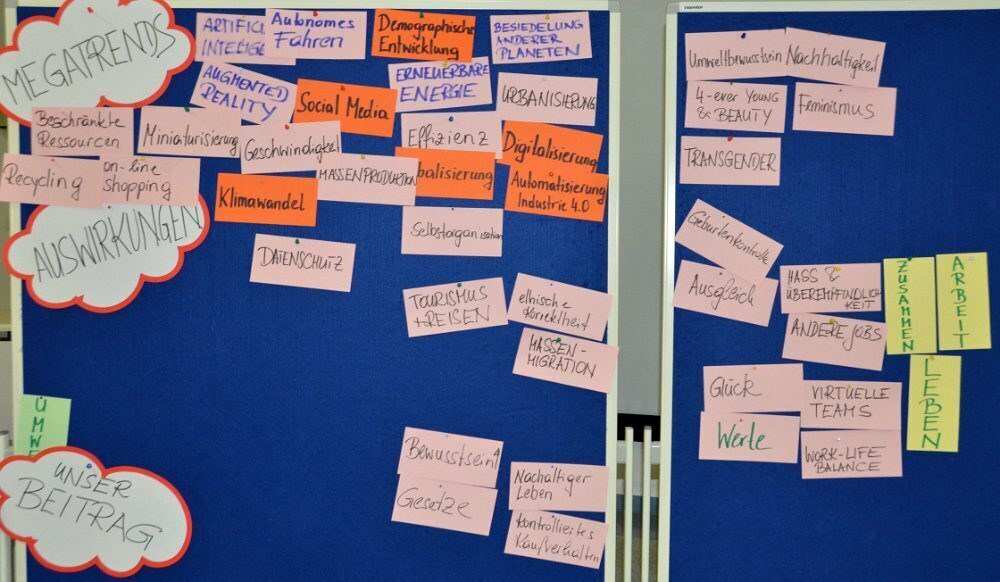 MEGATRENDS
ARTIFICI.
INTELIGE
Autonomes
Fahren
Demographische
Entwicklung
BESIEDELUNG
ANDERER
PLANETEN
AUGMENTED
REALITY
Social Media
ERNEUERBARE
ENERGIE
URBANISIERUNG
Beschränkte
Ressourcen
Miniaturisierung
Geschwindigkeit
Effizienz
Digitalisierung
Recycling
on-line
shopping
MASSENPRODUKTION
balisierung
Automatisierung
Industrie 4.0
Klimawandel
AUSWIRKUNGEN
Selbstorganisation
DATENSCHUTZ
TOURISMUS
+REISEN
ethische
Korrektheit
MASSEN-
MIGRATION
ÜMWE
UNSER
BEITRAG
Bewusstsein
Gesetze
Nachältiger
Leben
kontrolliertes
Kaufverhalten
Umweltbewusstsein
Nachhaltigkeit
4-ever YOUNG
& BEAUTY
Feminismus
TRANSGENDER
Geburtenkontrolle
Ausgleich
HASS &
ÜBEREMPFINDLICH-
KEIT
ZUSAMMEN
ARBEIT
ANDERE JOBS
LEBEN
Glück
VIRTUELLE
TEAMS
Werte
WORK-LIFE
BALANCE